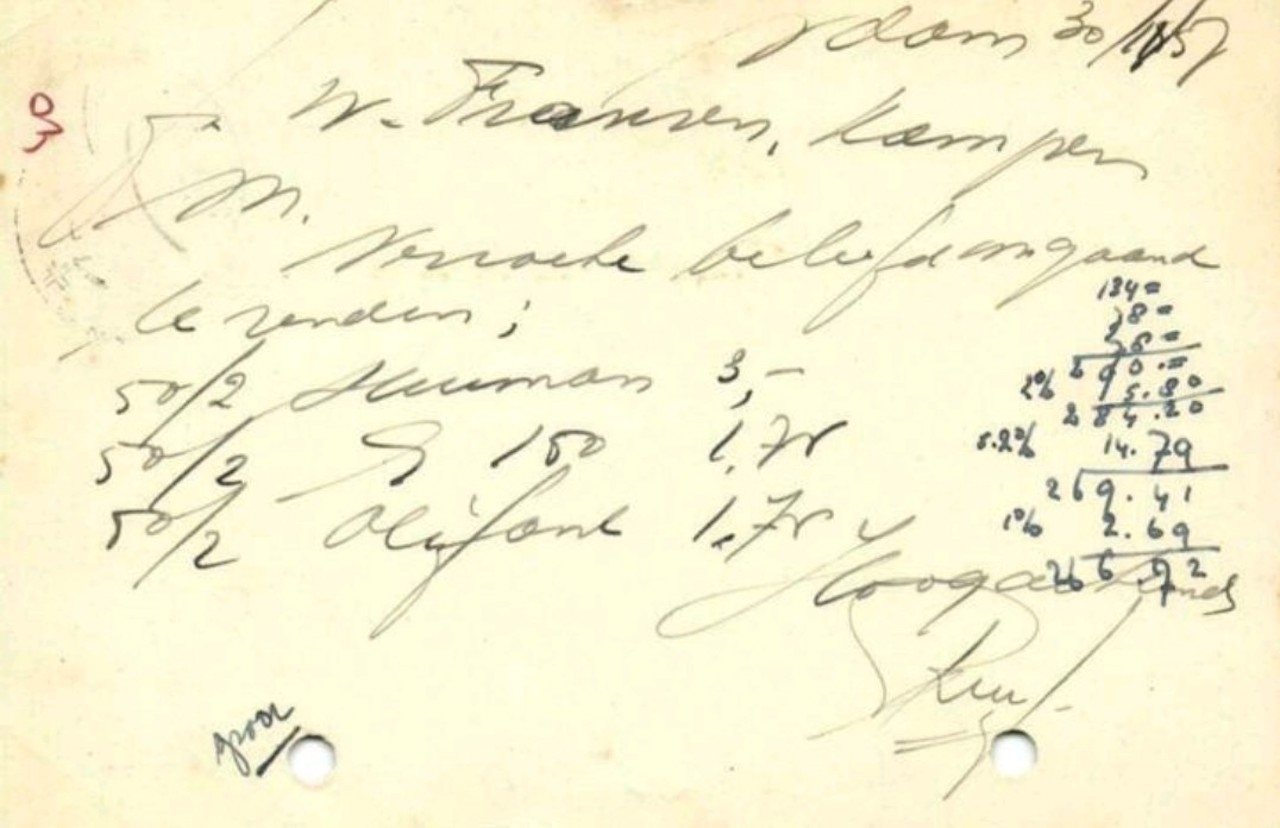 Adam 30/1 57
W. Fransen, Kampen
M.
Verzoeke beleefd omgaand
te zenden;
50/2 Senman 3,-
50/2 S 150 1.75
50/2 Olifant 1.75
Hoogachtend
134=
78=
78=
290.=
2% 5.80
284.20
5.2% 14.79
269.41
1% 2.69
266.72